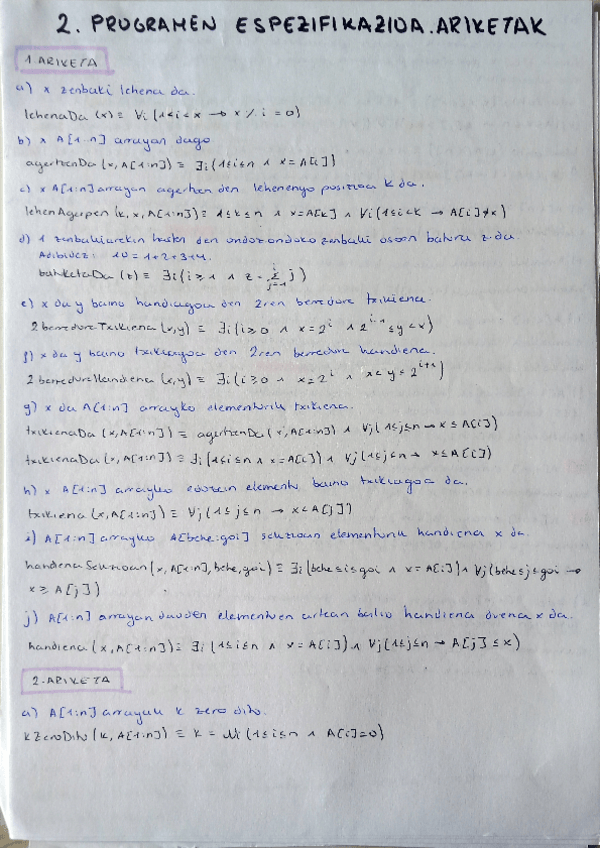 2. PROGRAMEN ESPEZIFIKAZIOA. ARIKETAK
1. ARIKETA
a) x zenbaki lehena da.
lehenaDa (x) ≡ ∀i (1≤i<x → x % i = 0)
b) x A[1..n] arrayan dago
agertzenDa (x, A[1:n]) ≡ ∃i (1≤i≤n ∧ x = A[i])
c) x A[1:n] arrayan agertzen den lehenengo posizioa k da.
lehenAgerpen (k, x, A[1:n]) ≡ 1≤k≤n ∧ x=A[k] ∧ ∀i (1≤i<k → A[i]≠x)
d) 1 zenbakiarekin hasten den ondoz ondoko zenbaki osoen batura z da.
Adibidez: 10 = 1+2+3+4.
baturaDa (z) ≡ ∃i (i≥1 ∧ z = Σ j=1 i j)
e) x da y baino handiagoa den 2ren berredura txikiena.
2berreduraTxikiena (x,y) ≡ ∃i (i≥0 ∧ x=2^i ∧ 2^i-1 ≤y<x)
f) x da y baino txikiagoa den 2ren berredura handiena.
2berreduraHandiena (x,y) ≡ ∃i (i≥0 ∧ x=2^i ∧ x<y≤2^i+1)
g) x da A[1:n] arrayko elementurik txikiena.
txikienaDa (x, A[1:n]) ≡ agertzenDa (x, A[1:n]) ∧ ∀j (1≤j≤n → x ≤ A[j])
txikienaDa (x, A[1:n]) ≡ ∃i (1≤i≤n ∧ x=A[i]) ∧ ∀j (1≤j≤n → x≤A[j])
h) x A[1:n] arrayko edozein elementu baino txikiagoa da.
txikiena (x, A[1:n]) ≡ ∀j (1≤j≤n → x<A[j])
i) A[1:n] arrayko A[behe:goi] sekzioan elementurik handiena x da.
handienaSekzioan (x, A[1:n], behe, goi) ≡ ∃i (behe≤i≤goi ∧ x=A[i]) ∧ ∀j (behe≤j≤goi →
x ≥ A[j])
j) A[1:n] arrayan dauden elementuen artean balio handiena duena x da.
handiena (x, A[1:n]) ≡ ∃i (1≤i≤n ∧ x=A[i]) ∧ ∀j (1≤j≤n → A[j] ≤ x)
2. ARIKETA
a) A[1:n] arrayak k zero ditu.
kZeroDitu (k, A[1:n]) ≡ k = Ni (1≤i≤n ∧ A[i]=0)